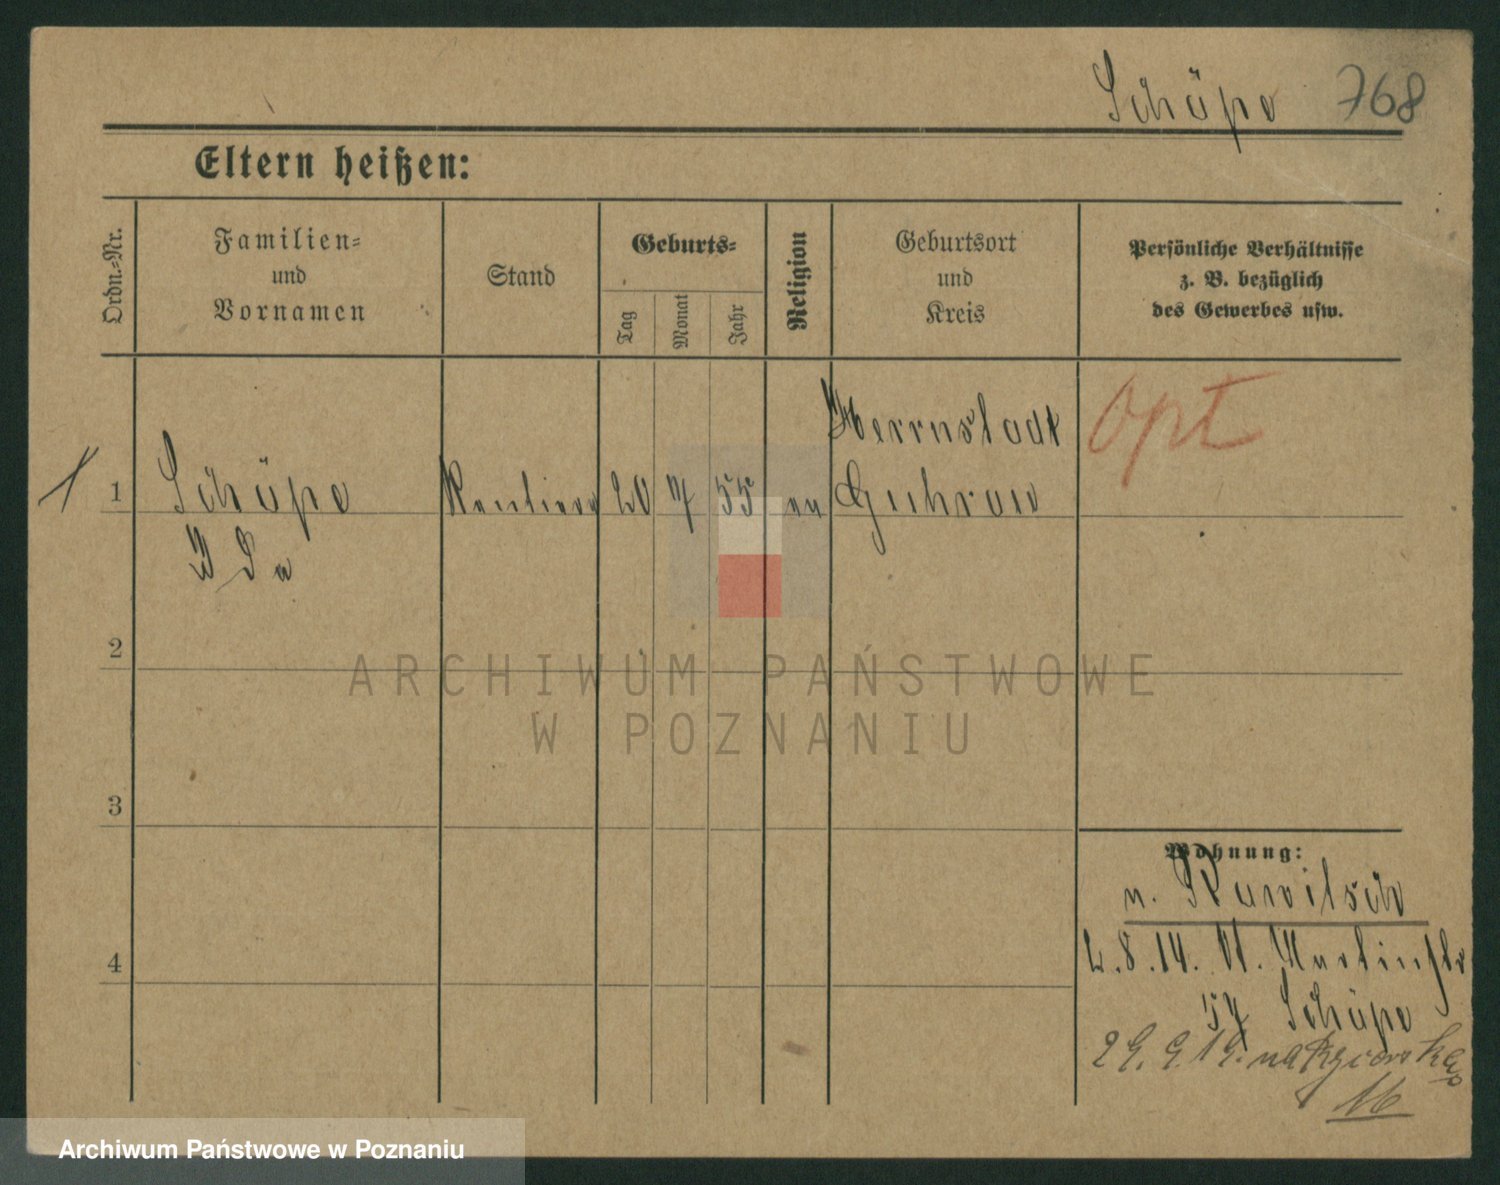 Schöpe 768
Eltern heißen:
Ordn.-Nr.
Familien-
und
Vornamen
Stand
Geburts-
Tag
Monat
Jahr
Religion
Geburtsort
und
Kreis
Persönliche Verhältnisse
z. B. bezüglich
des Gewerbes usw.
1 Schöpe Rentiere 20 7 55 ev
Ida
Herrnstadt
Guhrau
opt
2
3
4
Wohnung:
n. Rawitsch
2.8.14. St. Martinstr
57 Schöpe
29.9.19. na
16
ARCHIWUM PAŃSTWOWE
W POZNANIU
Archiwum Państwowe w Poznaniu